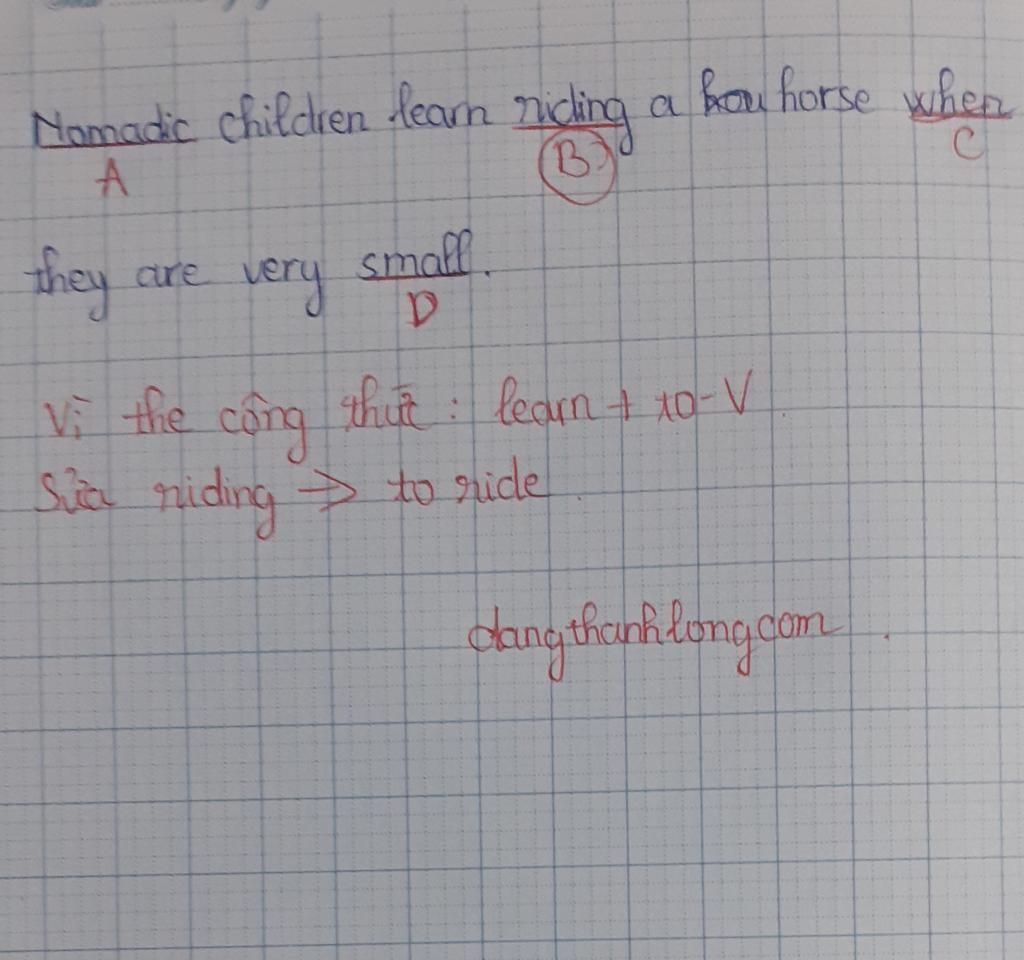 Nomadic children learn riding a horse when
A B C
they are very small.
D
Vì the công thức : learn + to-V
Sửa riding → to ride
dangthanhlongcom .